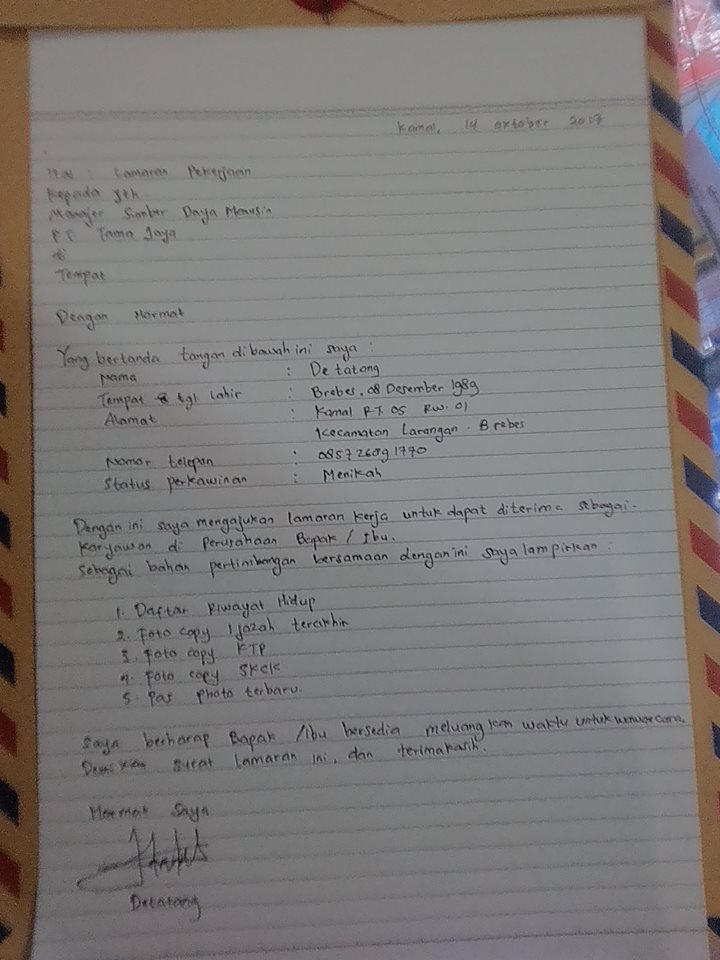 Kamal, 14 oktober 2017
Hal : Lamaran Pekerjaan
Kepada Yth
Manajer Sumber Daya Manusia
PT Tama Jaya
di
Tempat
Dengan Hormat
Yang bertanda tangan dibawah ini saya :
Nama : De tatong
Tempat & tgl lahir : Brebes, 08 Desember 1989
Alamat : Kamal RT. 05 RW. 01
Kecamatan Larangan - Brebes
Nomor telepon : 085726091770
Status perkawinan : Menikah
Dengan ini saya mengajukan lamaran kerja untuk dapat diterima sebagai
Karyawan di Perusahaan Bapak / Ibu.
Sebagai bahan pertimbangan bersamaan dengan ini saya lampirkan :
1. Daftar Riwayat Hidup
2. Foto copy Ijazah terakhir
3. Foto copy KTP
4. Foto copy SKCK
5. Pas photo terbaru.
Saya berharap Bapak /Ibu bersedia meluangkan waktu untuk wawancara.
surat lamaran ini, dan terimakasih.
Hormat Saya
Detatong